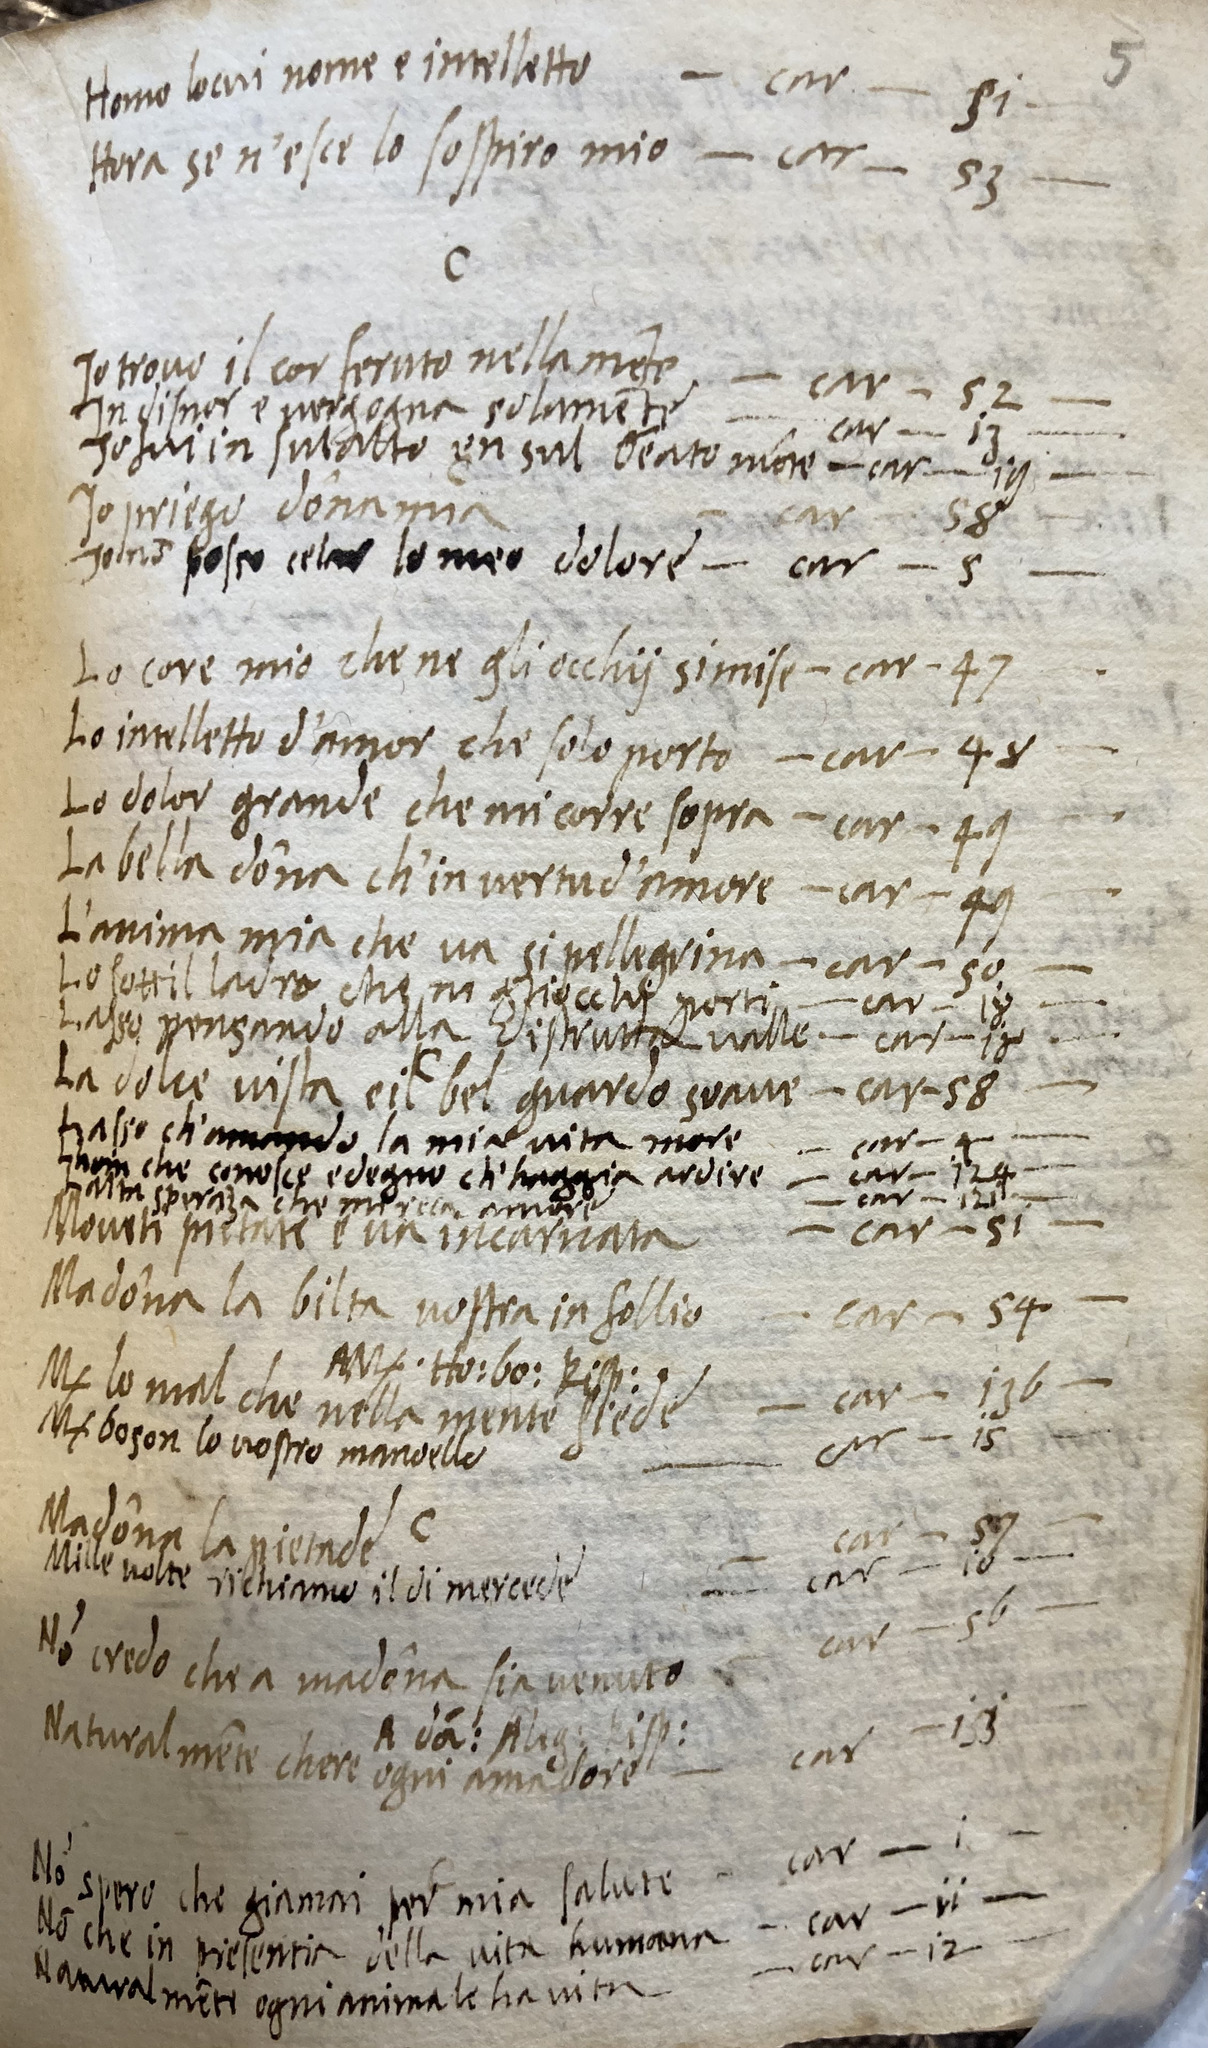 5
Homo locui nome e intelletto — car — 51
Hora se n'esce lo sospiro mio — car — 53 —
C
Io trouo il cor feruto nella mēte — car — 52 —
In disnor e uergogna solamēte — car — 13 —
Io fui in sul alto en sul beato mōte — car — 19 —
Io priego dōna mia — car — 58 —
Io nō posso celar lo meo dolore — car — 5 —
Lo core mio che ne gli occhij si mise — car — 47
Lo intelletto d'amor che solo porto — car — 48 —
Lo dolor grande che mi corre sopra — car — 49 —
La bella dōna ch'in uertu d'amore — car — 49 —
L'anima mia che ua si pellegrina — car — 50 —
Lo sottil ladro che ne gli occhij porti — car — 18 —
Lasso pensando alla distrutta ualle — car — —
La dolce uista e il bel guardo soaue — car — 58 —
Lasso ch'amando la mia uita more — car — 4 —
che conosce e degno ch'haggia ardire — car — 124 —
alta sperāza che mi reca amore — car — —
Moueti pietate e ua incarnata — car — 51 —
Madōna la bilta uostra in follio — car — 54 —
Ho: bo: Risp:
Mr lo mal che nella mente siede — car — 136 —
Mr boson lo uostro manoello — car — 15
Madōna la pietade C — car — 57 —
Mille uolte richiamo il di mercede — car — 10 —
Nō credo che a madōna sia uenuto — car — 56 —
A dā: Aleg: Risp:
Natural mēte chere ogni amadore — car — 133
Nō spero che giamai per mia salute — car — 1 —
Nō che in presentia della uita humana — car — 11 —
Natural mēte ogni animale ha uita — car — 12 —